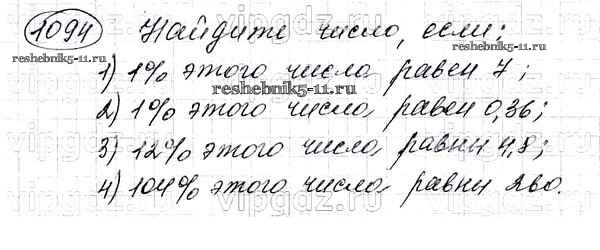 1094 Найдите число, если:
reshebnik5-11.ru
reshebnik5-11.ru
1) 1% этого числа равен 7;
reshebnik5-11.ru
2) 1% этого числа равен 0,36;
3) 12% этого числа равны 4,8;
4) 104% этого числа равны 260.